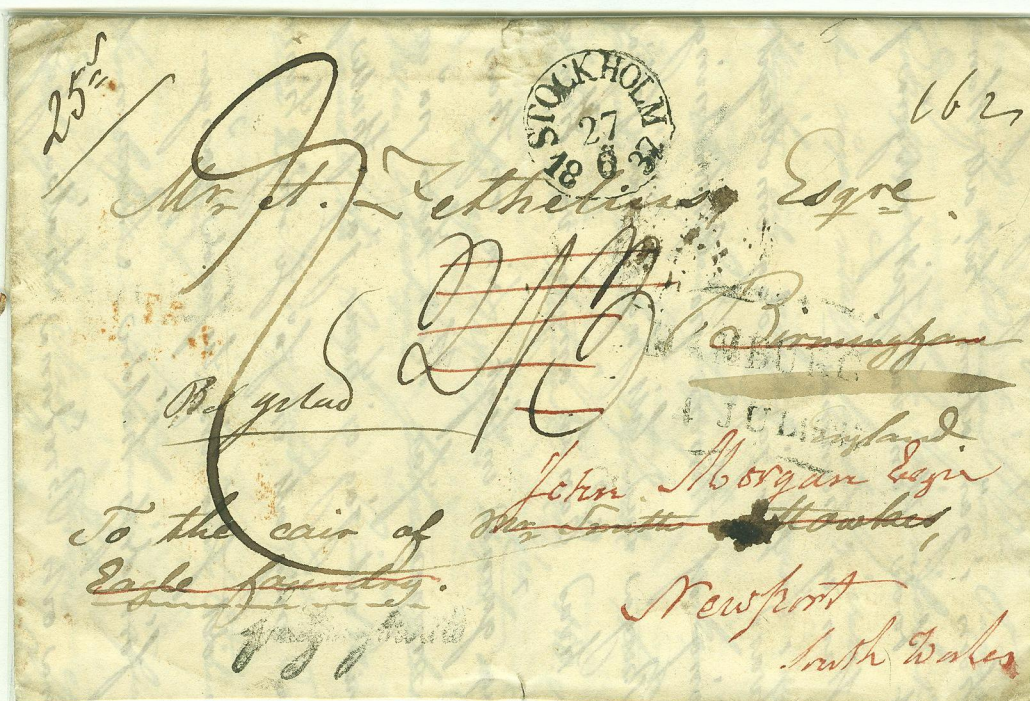 25
STOCKHOLM
27
6
18 37
162
Mr A. Zethelius Esqre.
2/3
Birmingham
HAMBURG
1 JUL
Ystad
England
John Morgan Esqre
To the cair of Mr Smith Hawkes,
Eagle foundry.
Newport
South Wales